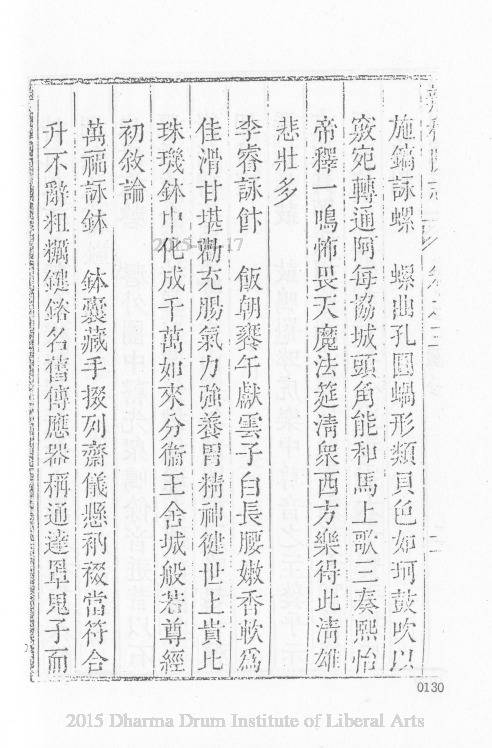 施鎬詠螺　螺曲孔圓蝸形類貝色如珂鼓吹以
竅宛轉通阿每協城頭角能和馬上歌三奏熙怡
帝釋一鳴怖畏天魔法筵清衆西方樂得此清雄
悲壯多
李睿詠飰　飯朝饔午獻雲子白長腰嫩香軟爲
佳滑甘堪勸充腸氣力強養胃精神健世上貴比
珠璣鉢中化成千萬如來分衞王舍城般若尊經
初敘論
萬福詠鉢　鉢囊藏手掇列齋儀懸衲裰當符合
升不辭粗糲鍵鎔名舊傳應器稱通達罩鬼子而
2015 17
0130
2015 Dharma Drum Institute of Liberal Arts